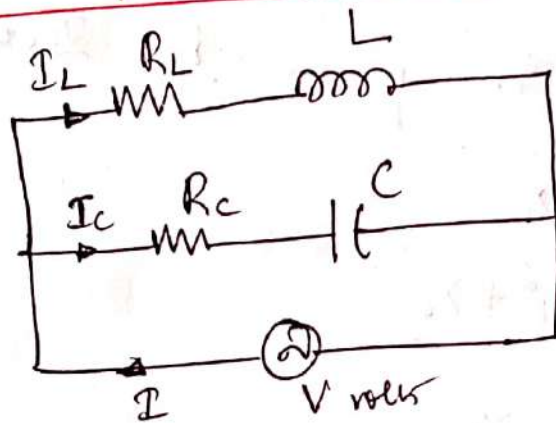 I_L R_L L
I_C R_C C
I V volts